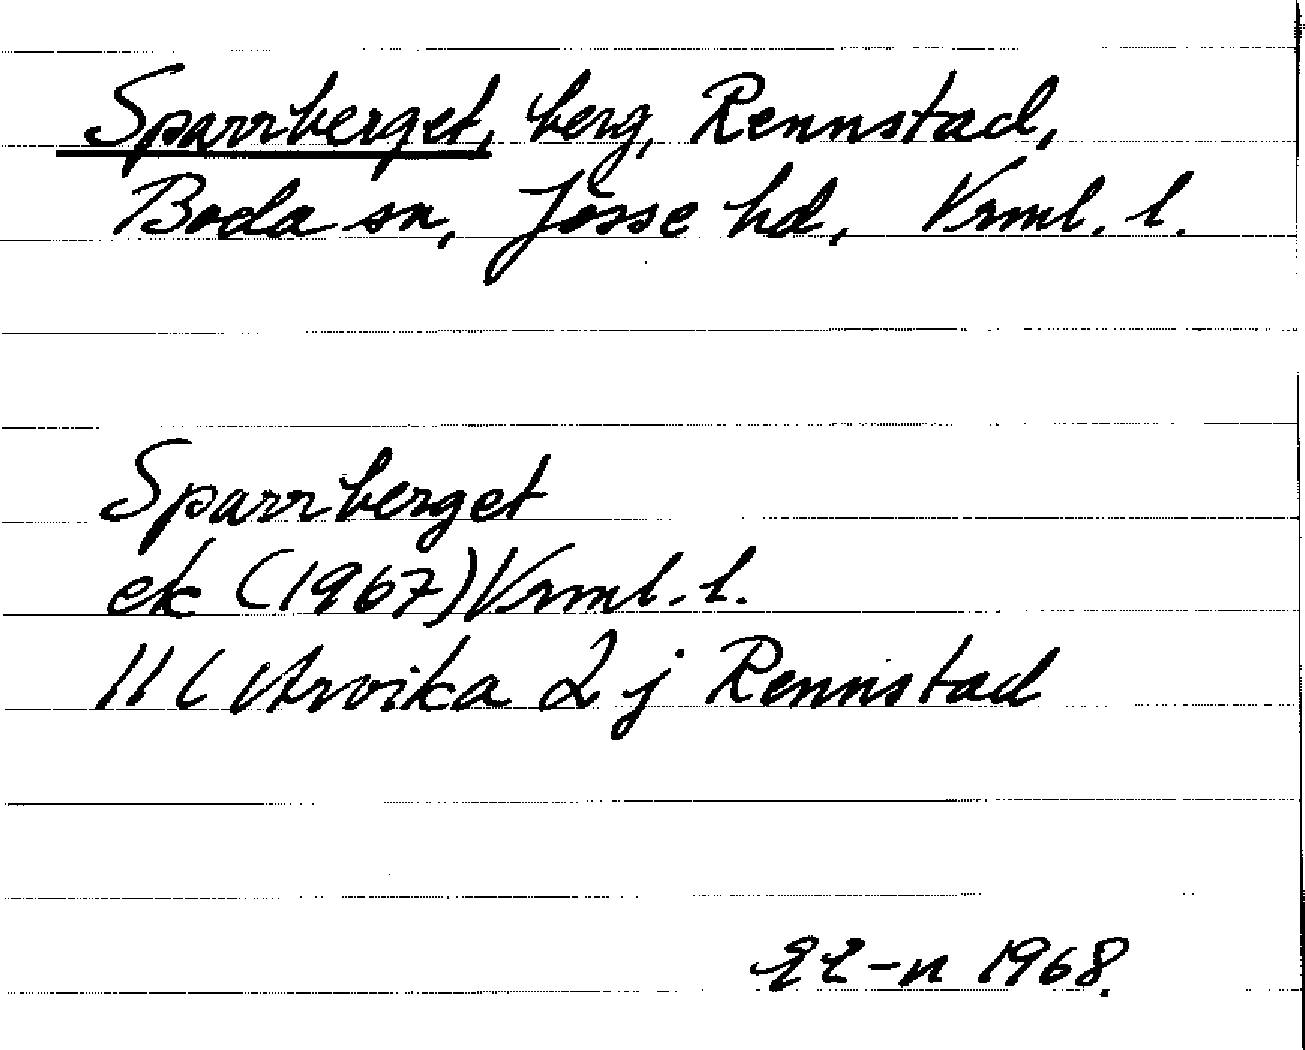 Sparrberget, berg, Rennstad,
Boda sn, Jösse hd, Vrml. l.
Sparrberget
ek (1967) Vrml. l.
11 C Arvika 2 j Rennstad
EL-n 1968.